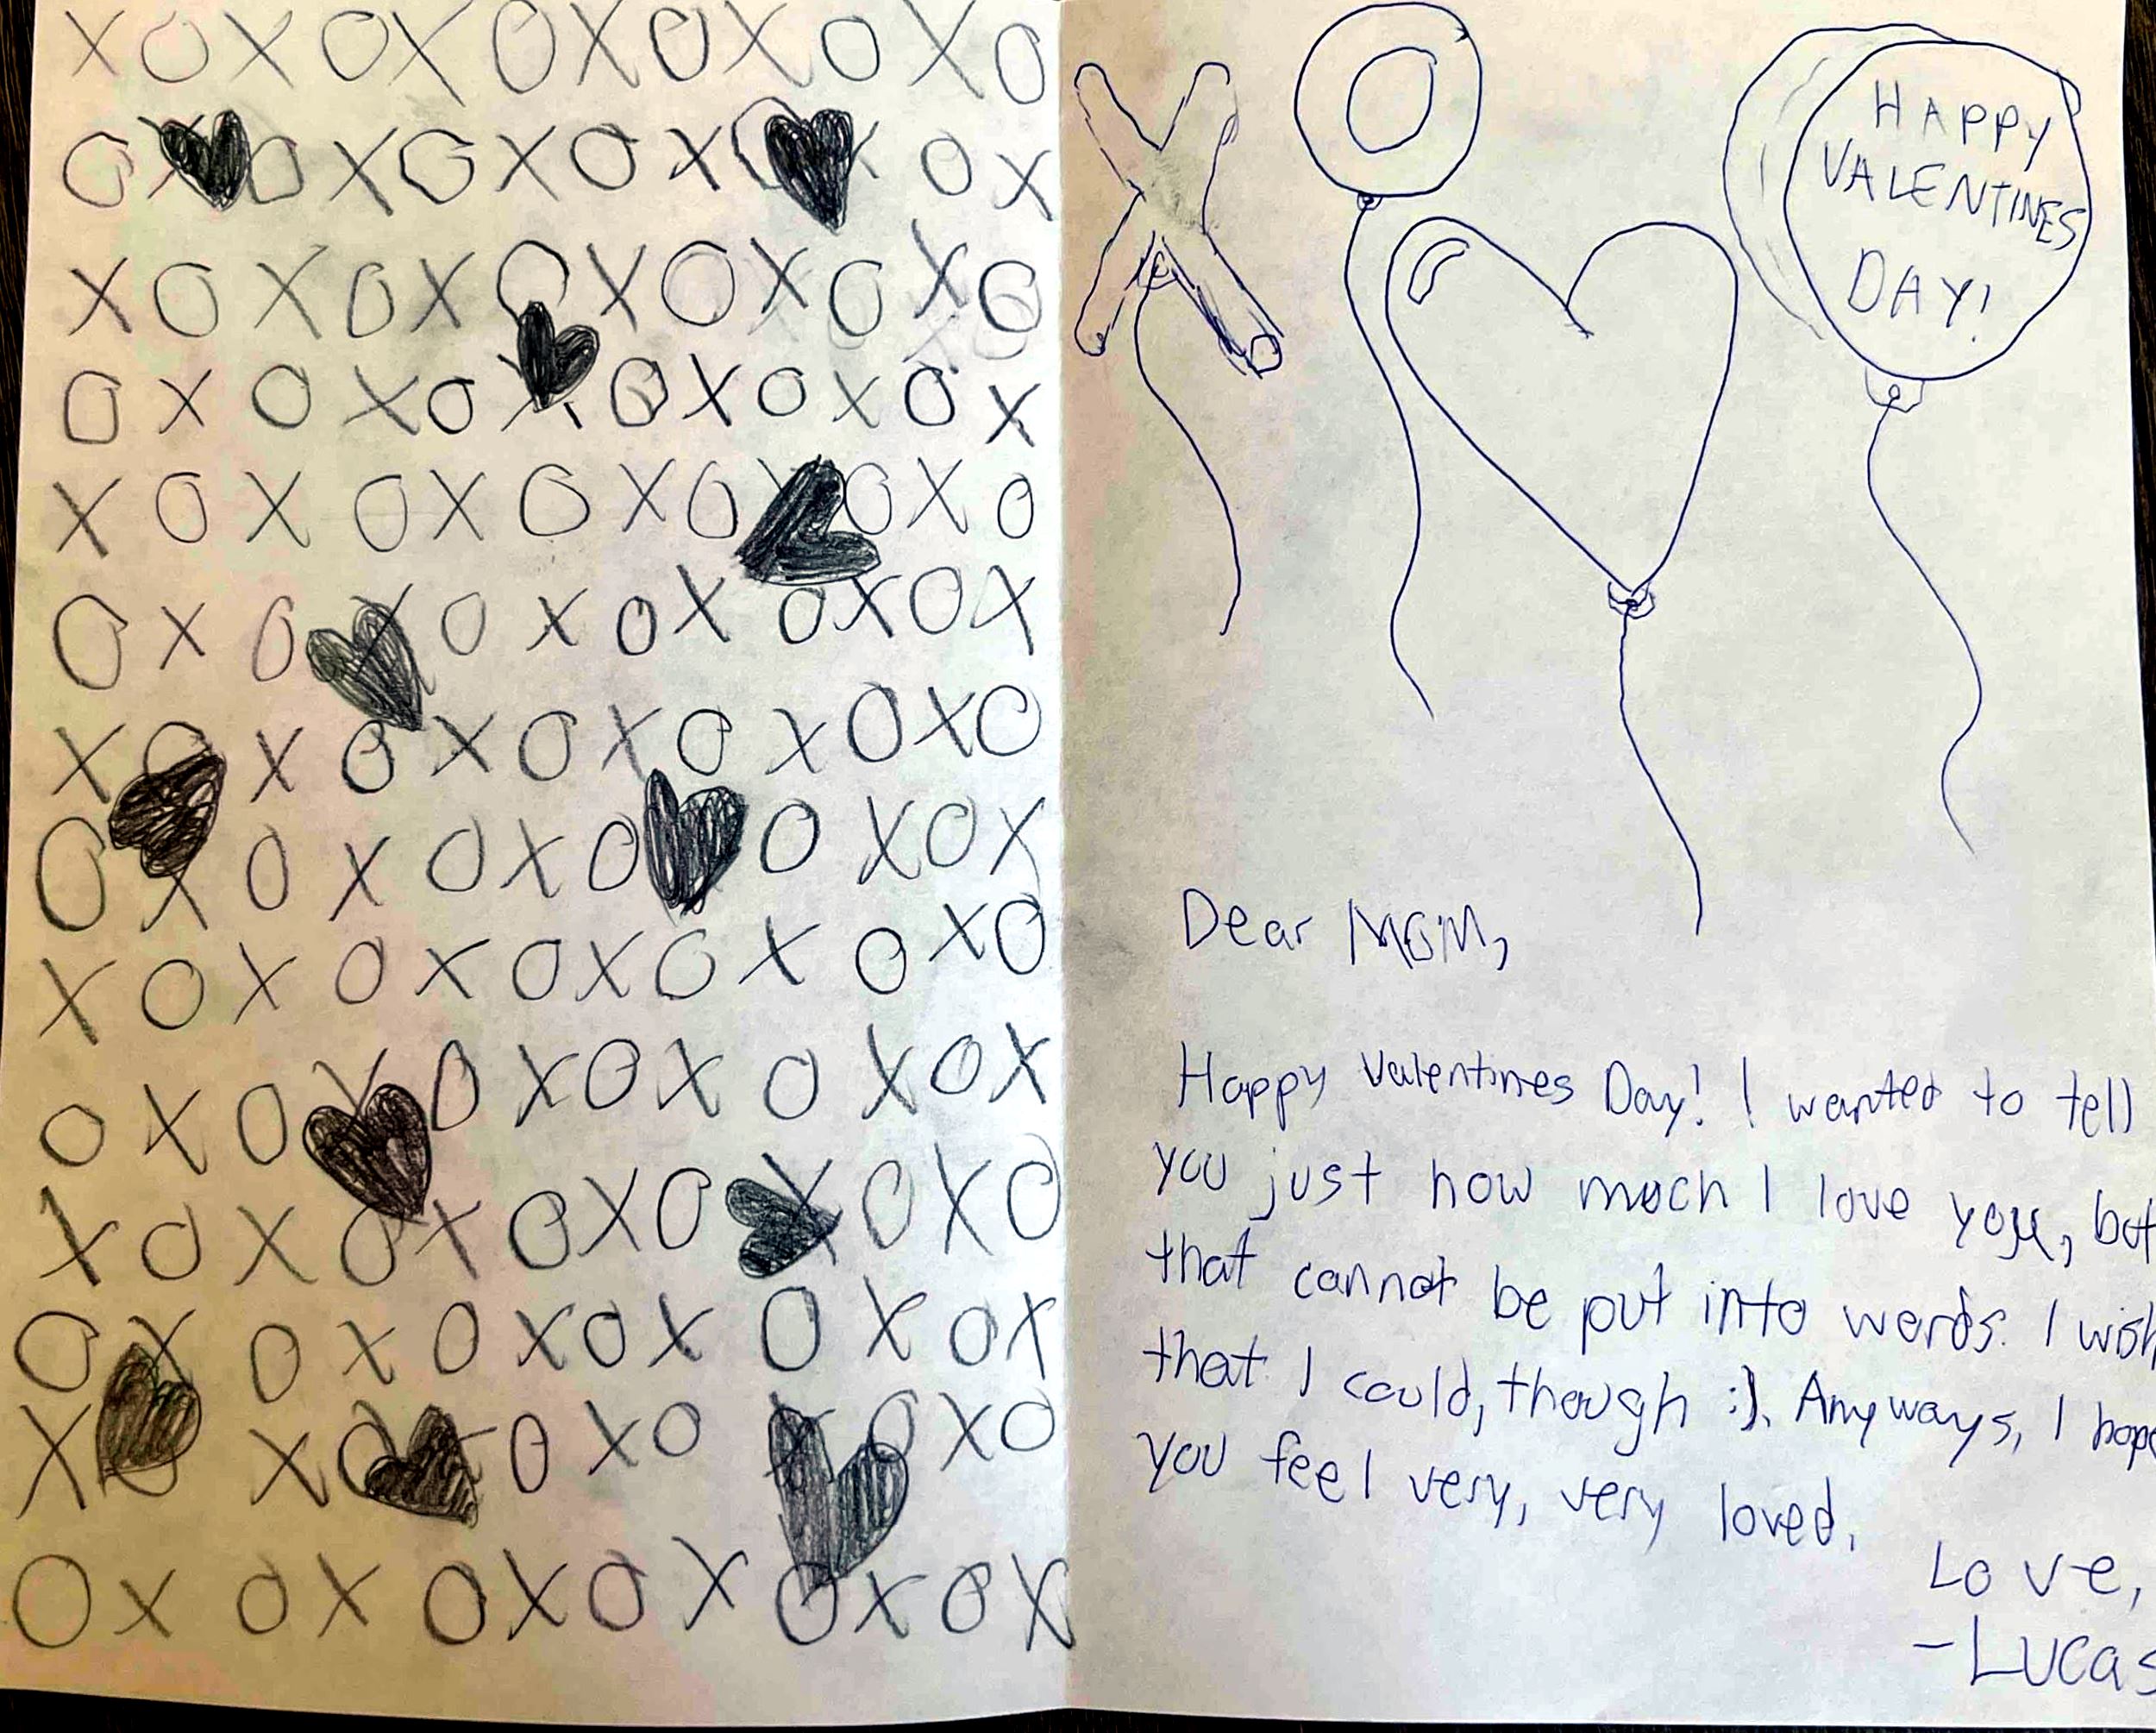 X O X O X O X O X O X O
O X O X O X O X O X O X
X O X O X O X O X O X O
O X O X O X O X O X O X
X O X O X O X O X O X O
O X O X O X O X O X O X
X O X O X O X O X O X O
O X O X O X O O X O X
X O X O X O X O X O X O
O X O X O X O X O X O X
X O X O X O X O X O X O
O X O X O X O X O X O X
X O X O X O X O X O X O
O X O X O X O X O X O X
X O
HAPPY
VALENTINES
DAY!
Dear MOM,
Happy Valentines Day! I wanted to tell
you just how much I love you, but
that cannot be put into words. I wish
that I could, though :). Anyways, I hope
you feel very, very loved.
Love,
-Lucas